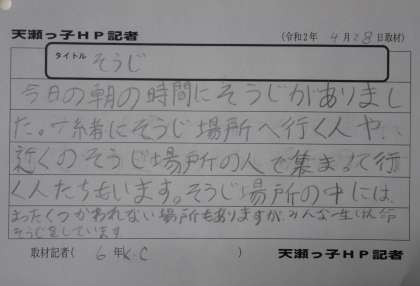 天瀬っ子HP記者 (令和2年 4月28日取材)
タイトル そうじ
今日の朝の時間にそうじがありまし
た。一緒にそうじ場所へ行く人や、
近くのそうじ場所の人で集まって行
く人たちもいます。そうじ場所の中には、
まったくつかわれない場所もありますが、みんな一生けん命
そうじをしています
取材記者( 6年K.C ) 天瀬っ子HP記者